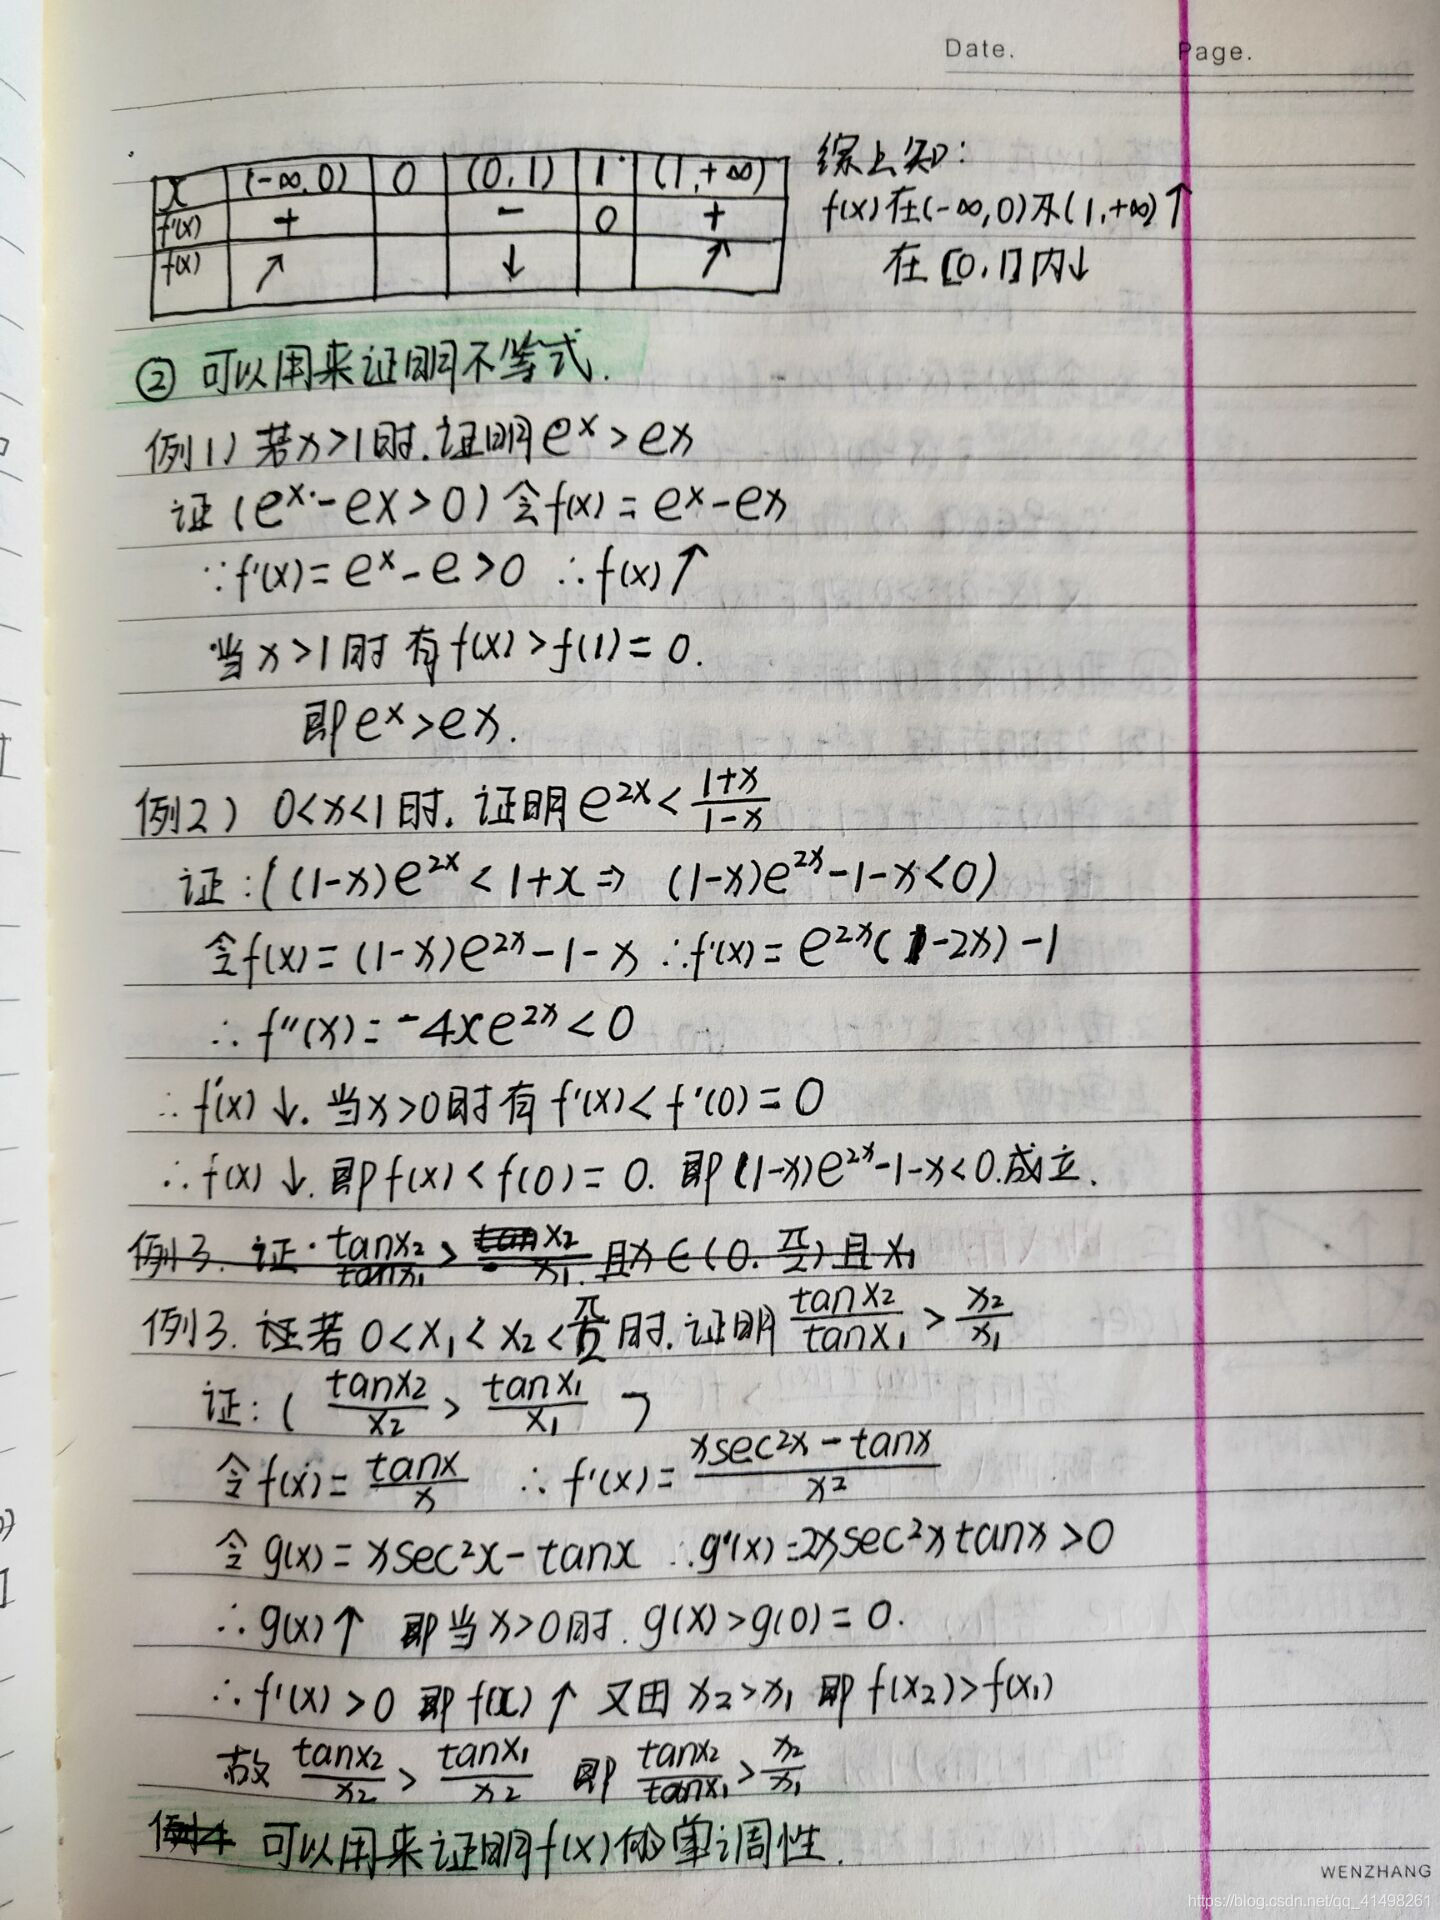 Date. Page.
x (-∞,0) 0 (0,1) 1 (1,+∞)
f'(x) + - 0 +
f(x) ↗ ↓ ↗
综上知:
f(x)在(-∞,0)及(1,+∞)↑
在[0,1]内↓
② 可以用来证明不等式.
例1) 若x>1时.证明e^x>ex
证(e^x-ex>0)令f(x)=e^x-ex
∵f'(x)=e^x-e>0 ∴f(x)↑
当x>1时有f(x)>f(1)=0.
即e^x>ex.
例2) 0<x<1时.证明e^{2x}<\frac{1+x}{1-x}
证:((1-x)e^{2x}<1+x⇒ (1-x)e^{2x}-1-x<0)
令f(x)=(1-x)e^{2x}-1-x ∴f'(x)=e^{2x}(1-2x)-1
∴f''(x)=-4xe^{2x}<0
∴f'(x)↓.当x>0时有f'(x)<f'(0)=0
∴f(x)↓.即f(x)<f(0)=0. 即(1-x)e^{2x}-1-x<0.成立.
例3. 证·\frac{tanx_2}{tanx_1}>\frac{x_2}{x_1}.且x∈(0.\frac{π}{2})且x_1
例3. 若0<x_1<x_2<\frac{π}{2}时.证明\frac{tanx_2}{tanx_1}>\frac{x_2}{x_1}
证:(\frac{tanx_2}{x_2}>\frac{tanx_1}{x_1})
令f(x)=\frac{tanx}{x} ∴f'(x)=\frac{xsec^2x-tanx}{x^2}
令g(x)=xsec^2x-tanx ∴g'(x)=2xsec^2xtanx>0
∴g(x)↑ 即当x>0时.g(x)>g(0)=0.
∴f'(x)>0 即f(x)↑ 又因x_2>x_1 即f(x_2)>f(x_1)
故\frac{tanx_2}{x_2}>\frac{tanx_1}{x_2} 即\frac{tanx_2}{tanx_1}>\frac{x_2}{x_1}
例4 可以用来证明f(x)的单调性.
WENZHANG
https://blog.csdn.net/qq_41498261